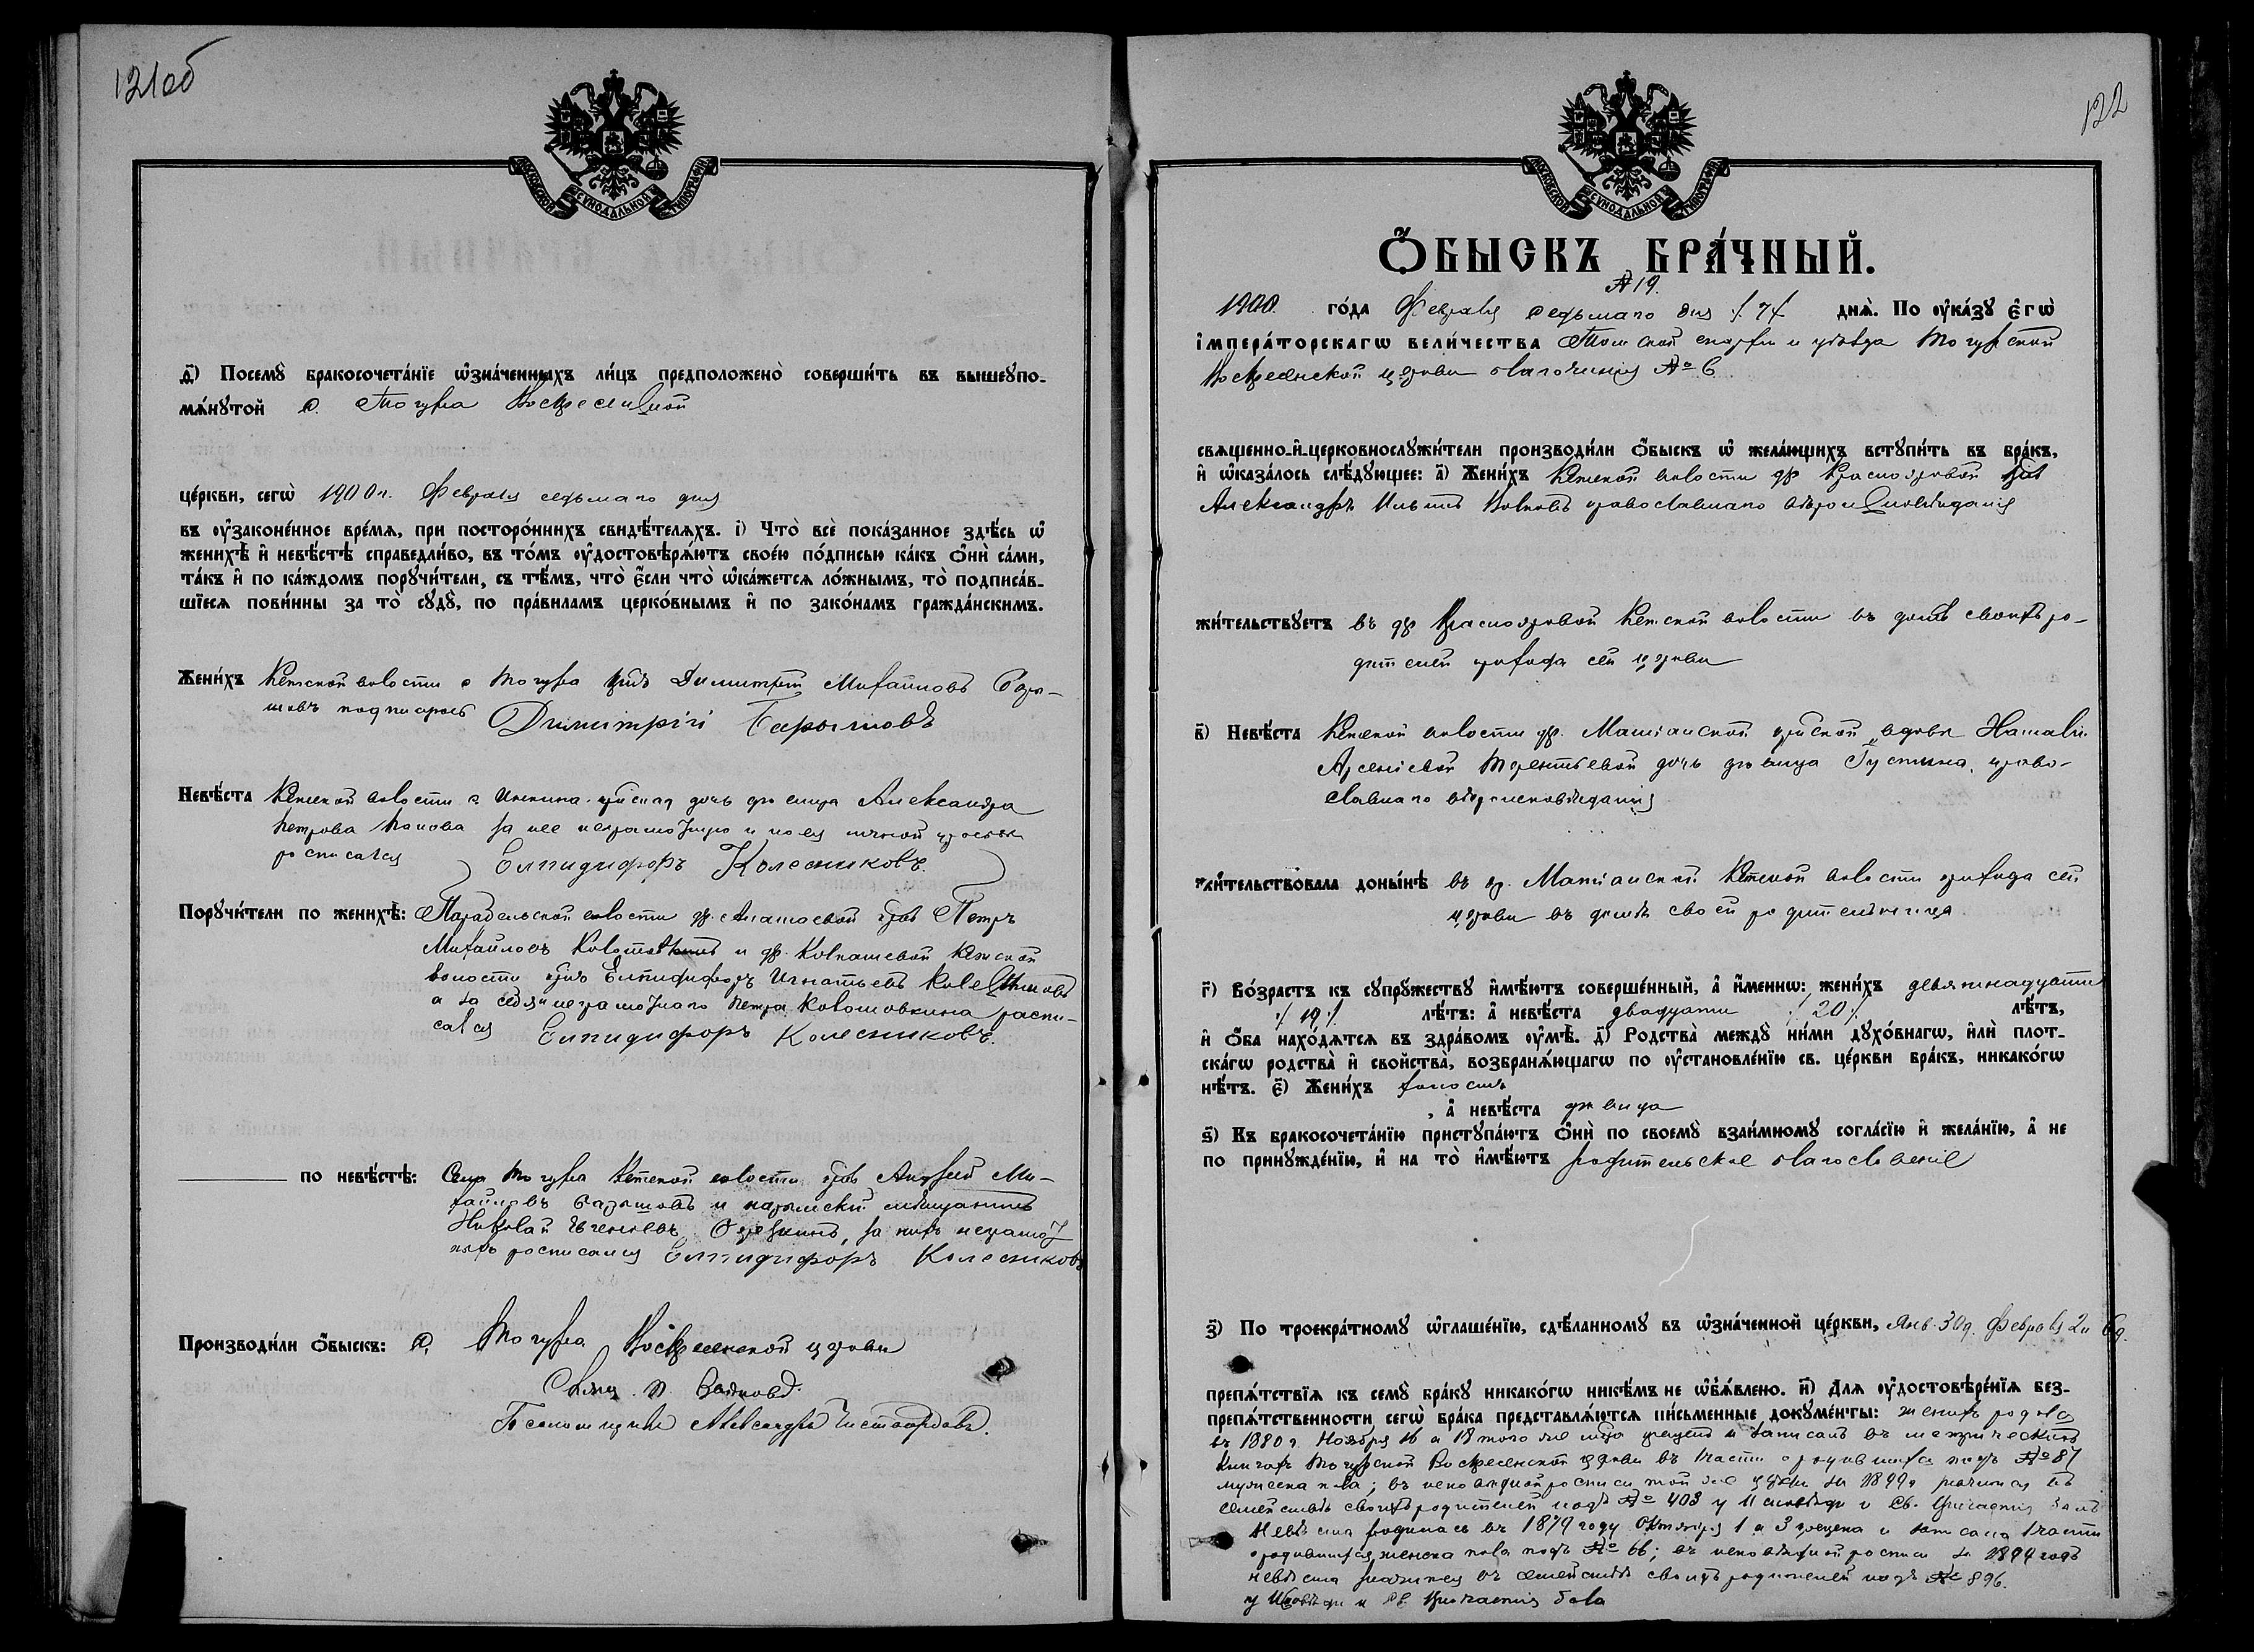 121об
МОСКОВСКОЙ СѴНОДАЛЬНОЙ ТИПОГРАФІИ
д҃) Посемꙋ̀ бракосочета́нїе ѡ҆зна́ченныхъ ли́цъ предположено̀ соверши́ть въ вышеꙋпо-
мѧ́нꙋтой с. Тогура Воскресенской
це́ркви, сегѡ̀ 1900 г. Февраля седьмаго дня
въ ᲂу҆зако́ненное вре́мѧ, при посторо́ннихъ свидѣ́телѧхъ. і҃) Что̀ всѐ пока́занное здѣ́сь ѡ҆
женихѣ̀ и҆ невѣ́стѣ справедли́во, въ то́мъ ᲂу҆достовѣрѧ́ютъ свое́ю по́дписью ка́къ ѻ҆нѝ са́ми,
та́къ и҆ по ка́ждомъ порꙋчи́тели, съ тѣ́мъ, что̀ є҆́сли что̀ ѡ҆ка́жетсѧ ло́жнымъ, то̀ подписа́в-
шїесѧ пови́нны за то̀ сꙋдꙋ̀, по пра́виламъ церко́внымъ и҆ по зако́намъ гражда́нскимъ.
Жени́хъ Кетской волости с Тогура Димитрій Михайловъ Бары-
шовъ Димитрій Барышовъ
Невѣ́ста Кетской волости с. Инкина дочь девица Александра
Петрова Попова за нее неграмотную и по ея личной просьбѣ
росписался Елпидифоръ Колесниковъ.
Порꙋчи́тели по женихѣ̀: Парабельской волости Петръ
Михайловъ и др. Колпашевой Кетской
волости Елпидифоръ Игнатьевъ Колесниковъ
а за себя и неграмотнаго Петра Коломовкина распи-
сался Елпидифоръ Колесниковъ.
по невѣ́стѣ: Села Тогура Кетской волости Андрей Ми-
хайловъ Барышовъ и нарымскій мѣщанинъ
Николай за нихъ неграмот
ныхъ росписался Елпидифоръ Колесниковъ
Производи́ли ѻ҆́быскъ: с. Тогура Воскресенской церкви
Свящ.
Псаломщикъ Александръ
122
МОСКОВСКОЙ СѴНОДАЛЬНОЙ ТИПОГРАФІИ
Ѻ҆БЫСКЪ БРА́ЧНЫЙ.
№ 19.
1900 го́да Февраля седьмаго дня /7/ днѧ̀. По ᲂу҆ка́зꙋ є҆гѡ̀
і҆мпера́торскагѡ вели́чества Томской епархіи и уѣзда Тогурской
Воскресенской церкви благочинія № 6
свѧщенно-и҆-церковнослꙋжи́тели производи́ли ѻ҆́быскъ ѡ҆ жела́ющихъ встꙋпи́ть въ бра́къ,
и҆ ѡ҆каза́лось слѣ́дꙋющее: а҃) Жени́хъ Кетской волости др Красноярской
Александръ Ильинъ Волковъ православнаго вѣроисповѣданія
жи́тельствꙋетъ въ др Красноярской Кетской волости въ домѣ своихъ ро-
дителей прихода сей церкви
в҃) Невѣ́ста Кетской волости др. Матіанской вдовы Наталіи
Арсеніевой Терентьевой дочь девица Густина, право-
славнаго вѣроисповѣданія
жи́тельствовала донынѣ въ др. Матіанской Кетской волости прихода сей
церкви въ домѣ своей родительницы
г҃) Во́зрастъ къ сꙋпрꙋ́жествꙋ и҆мѣ́ютъ соверше́нный, а҆ и҆́менно: жени́хъ девятнадцати
/19/ лѣ́тъ: а҆ невѣ́ста двадцати /20/ лѣ́тъ,
и҆ ѻ҆́ба нахо́дѧтсѧ въ здра́вомъ ᲂу҆мѣ̀. д҃) Родства̀ междꙋ ни́ми дꙋхо́внагѡ, и҆лѝ плот-
ска́гѡ родства̀ и҆ сво́йства, возбранѧ́ющагѡ по ᲂу҆становле́нїю св. це́ркви бра́къ, никако́гѡ
нѣ́тъ. є҃) Жени́хъ холостъ
, а҆ невѣ́ста девица
ѕ҃) Къ бракосочета́нїю пристꙋпа́ютъ ѻ҆нѝ по своемꙋ̀ взаи́мномꙋ согла́сїю и҆ жела́нїю, а҆ не
по принꙋжде́нїю, и҆ на то̀ и҆мѣ́ютъ родительское благословеніе
з҃) По троекра́тномꙋ ѡ҆глаше́нїю, сдѣ́ланномꙋ въ ѡ҆зна́ченной це́ркви, Янв. 30 д. Февраля 2 и 6 д.
препѧ́тствїѧ къ семꙋ̀ бра́кꙋ никако́гѡ никѣ́мъ не ѡ҆б̾ѧ́влено. и҃) Длѧ ᲂу҆достовѣре́нїѧ без-
препѧ́тственности сегѡ̀ бра́ка представлѧ́ютсѧ пи́сьменные докꙋме́нты: женихъ родился
въ 1880 г. Ноября 16 а 18 того же крещенъ и записанъ въ метрическихъ
книгахъ Тогурской Воскресенской церкви въ части о родившихся подъ № 87
мужеска пола; въ исповѣдной росписи той же церкви за 1899 г значится въ
семействѣ своихъ родителей подъ № 403 у исповѣди и Св. Причастія былъ
Невѣста родилась въ 1879 году Октября 1 а 3 крещена и записана 1 части
о родившихся женска пола подъ № 66; въ исповѣдной росписи за 1899 годъ
невѣста значится въ семействѣ своихъ родителей подъ № 896.
у Исповѣди и Св. Причастія была